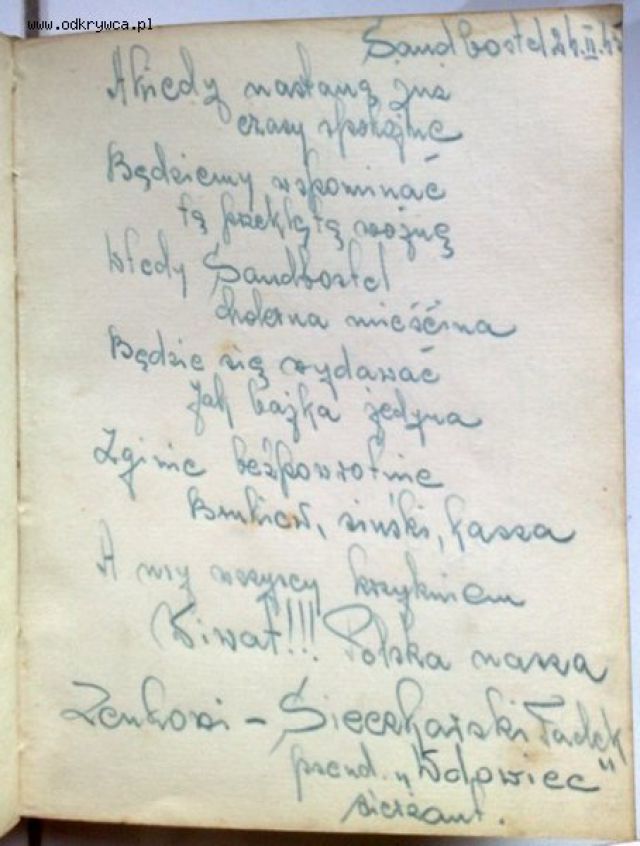 www.odkrywca.pl
Sandbostel 26.II.45
A kiedy nastaną już
czasy spokojne
Będziemy wspominać
tą przeklętą wojnę
Wtedy Sandbostel
cholerna mieścina
Będzie się wydawać
Jak bajka jedyna
Zginie bezpowrotnie
Brukiew, sinśki, kasza
A my wszyscy krzykniem
Wiwat!!! Polska nasza
Zenkowi - Sieczkarski Tadek
pseud. „Wdowiec"
sierżant.